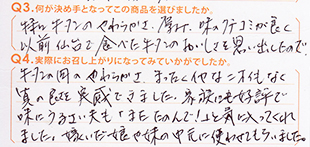 Q3.何が決め手となってこの商品を選びましたか。
特に牛タンのやわらかさ、厚み、味のクチコミが良く
以前仙台で食べた牛タンのおいしさを思い出したので。
Q4.実際にお召し上がりになってみていかがでしたか。
牛タンの肉のやわらかさ、まったくイヤなニオイもなく
質の良さを実感できました。家族にも好評で
味にうるさい夫も「またたのんで!」と気に入ってくれ
ました。嫁いだ娘や妹の中元に使わせてもらいました。